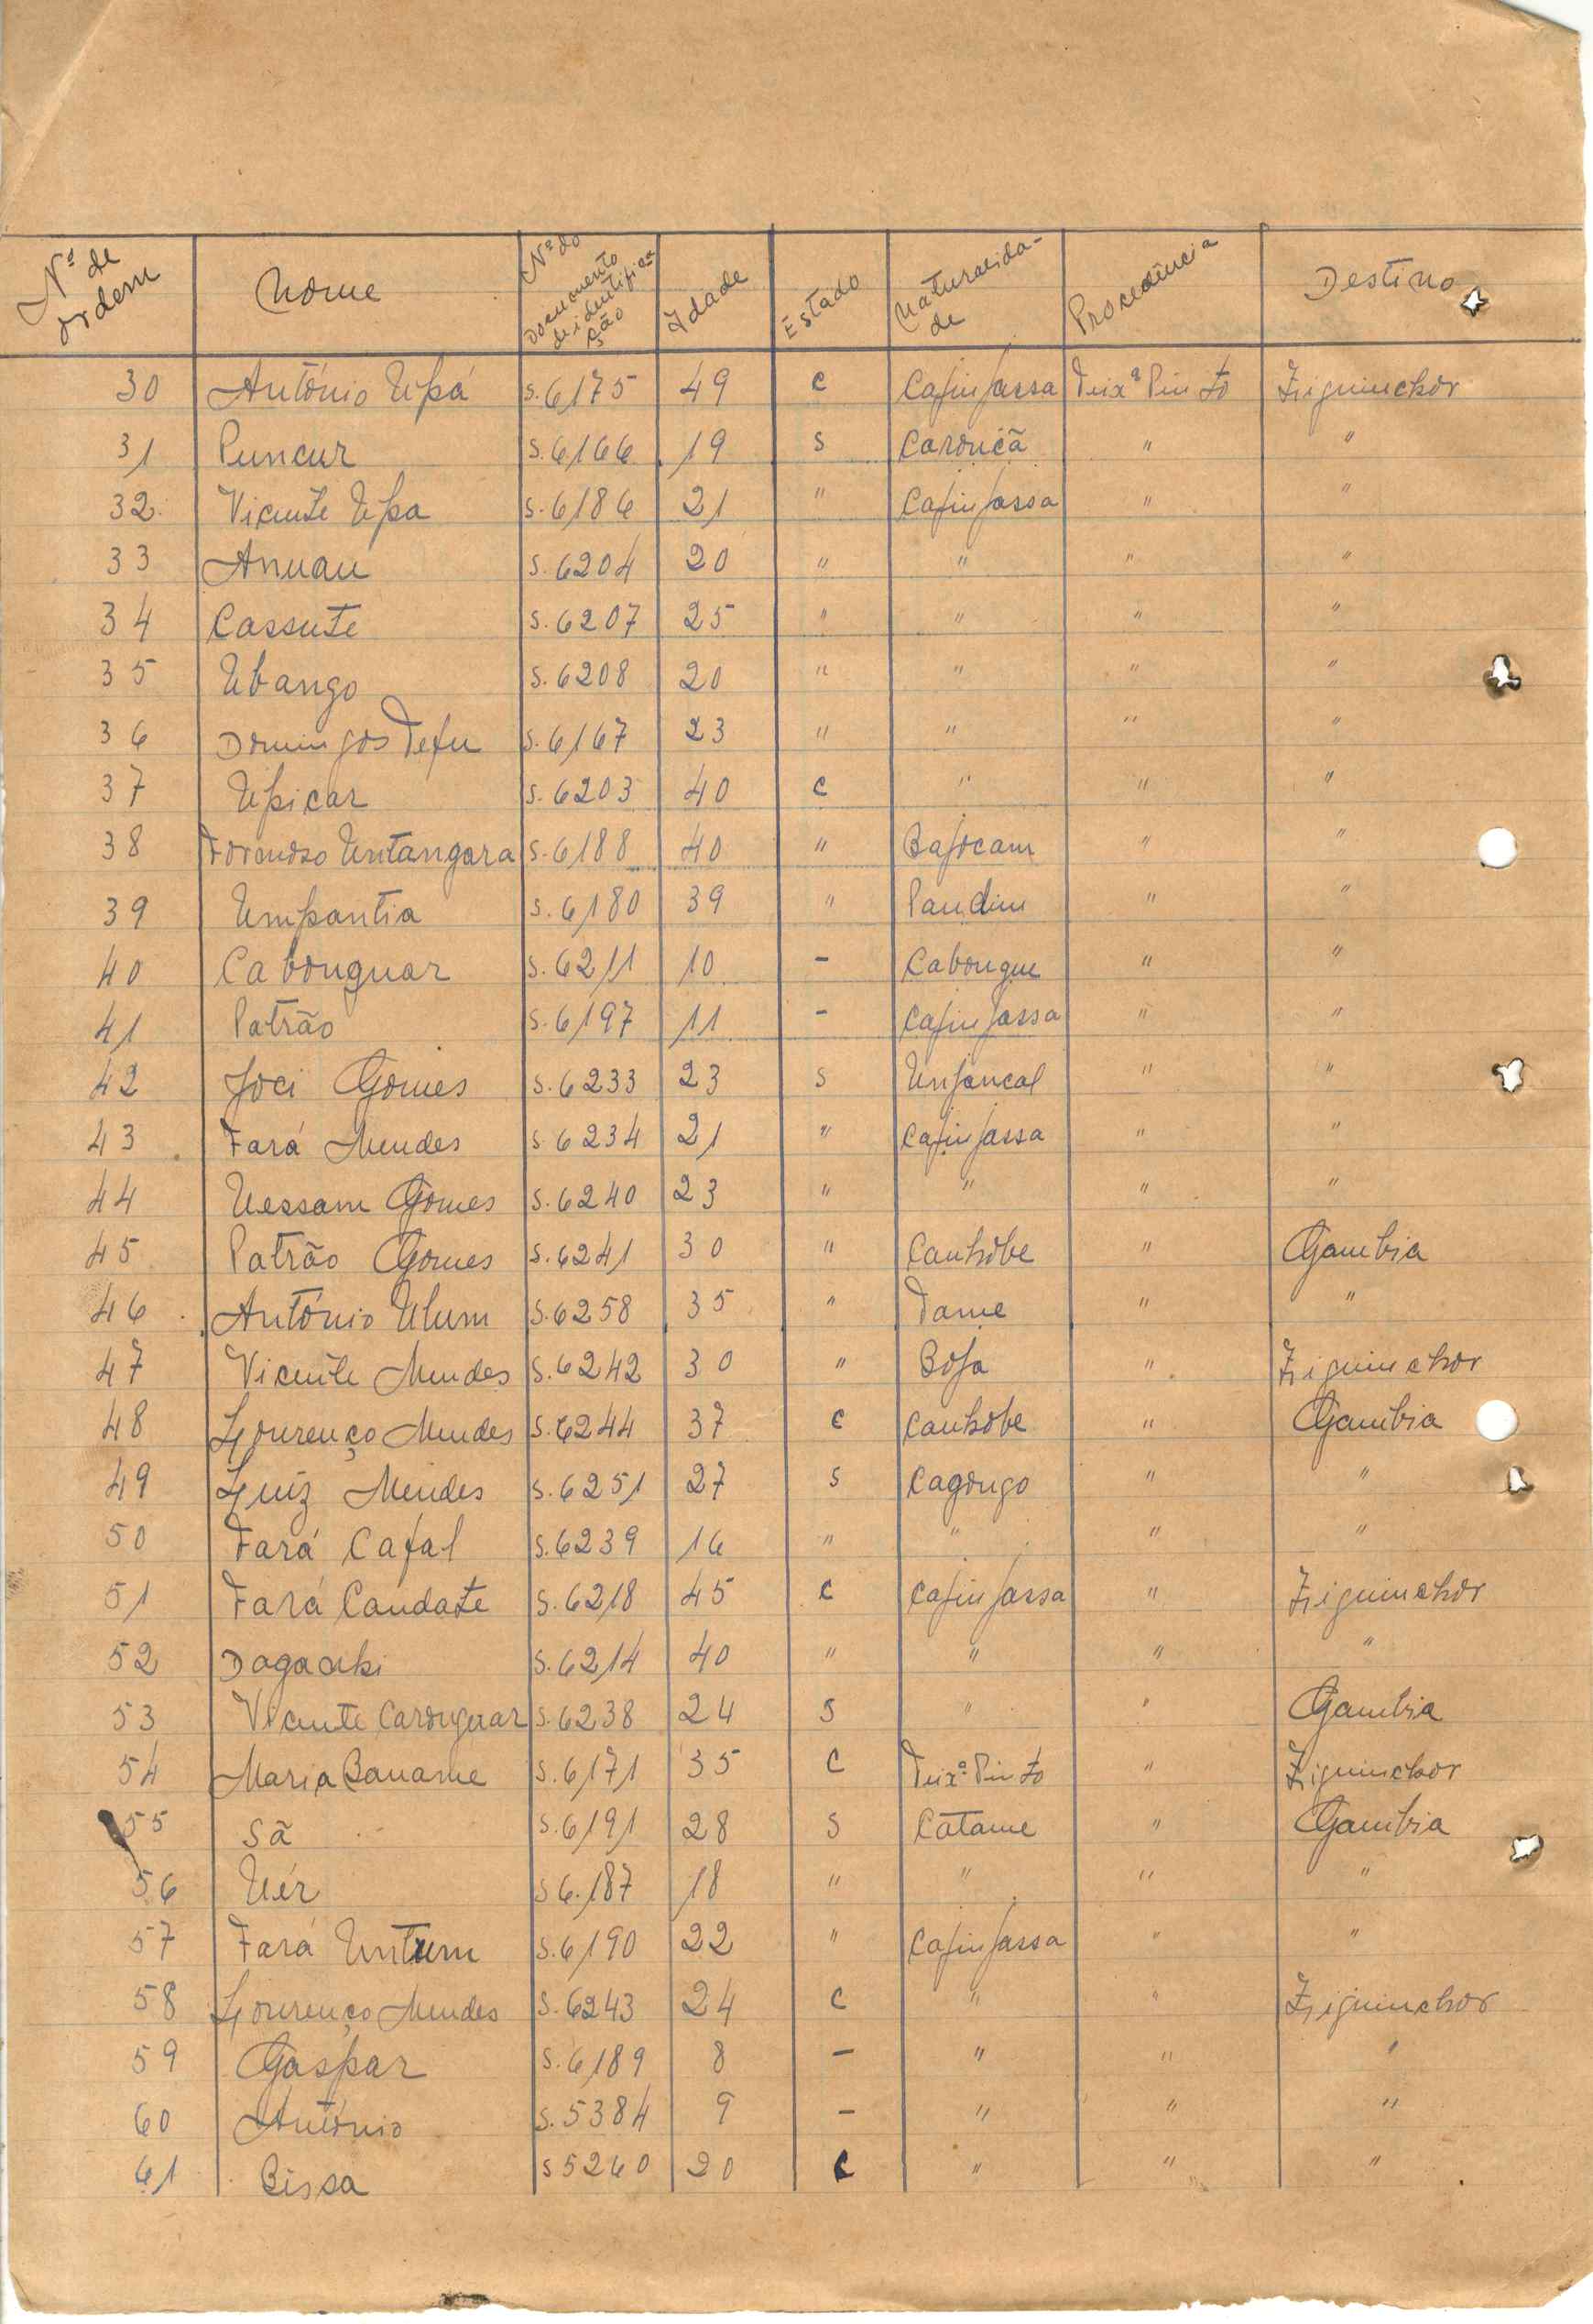 Nº de ordem Nome Nº do Documento de identificação Idade Estado Naturalidade Procedência Destino
30 António Upá S.6175 49 C Cajinjassa Teixª Pinto Ziguinchor
31 Puncur S.6166 19 S Caroncã " "
32 Vicente Upa S.6186 21 " Cajinjassa " "
33 Anuau S.6204 20 " " " "
34 Cassute S.6207 25 " " " "
35 Ubango S.6208 20 " " " "
36 Domingos Tefu S.6167 23 " " " "
37 Upicar S.6203 40 C " " "
38 Formoso Untangara S.6188 40 " Bajocam " "
39 Umpantia S.6180 39 " Pandim " "
40 Cabonguar S.6211 10 - Cabongue " "
41 Patrão S.6197 11 - Cajinjassa " "
42 Joci Gomes S.6233 23 S Unjancal " "
43 Fará Mendes S 6234 21 " Cajinjassa " "
44 Uessam Gomes S.6240 23 " " " "
45 Patrão Gomes S.6241 30 " Canhóbe " Gambia
46 António Ulum S.6258 35 " Tame " "
47 Vicente Mendes S.6242 30 " Bója " Ziguinchor
48 Lourenço Mendes S.6244 37 C Canhóbe " Gambia
49 Luíz Mendes S.6251 27 S Cagongo " "
50 Fará Cafal S.6239 16 " " " "
51 Fará Candate S.6218 45 C Cajinjassa " Ziguinchor
52 Dagaupi S.6214 40 " " " "
53 Vicente Caronguar S.6238 24 S " " Gambia
54 Maria Baname S.6171 35 C Teixª Pinto " Ziguinchor
55 Sã S.6191 28 S Catame " Gambia
56 Uér S 6.187 18 " " " "
57 Fará Untum S.6190 22 " Cajinjassa " "
58 Lourenço Mendes S.6243 24 C " " Ziguinchor
59 Gaspar S.6189 8 - " " "
60 António S.5384 9 - " " "
61 Bissa S 5260 20 C " " "